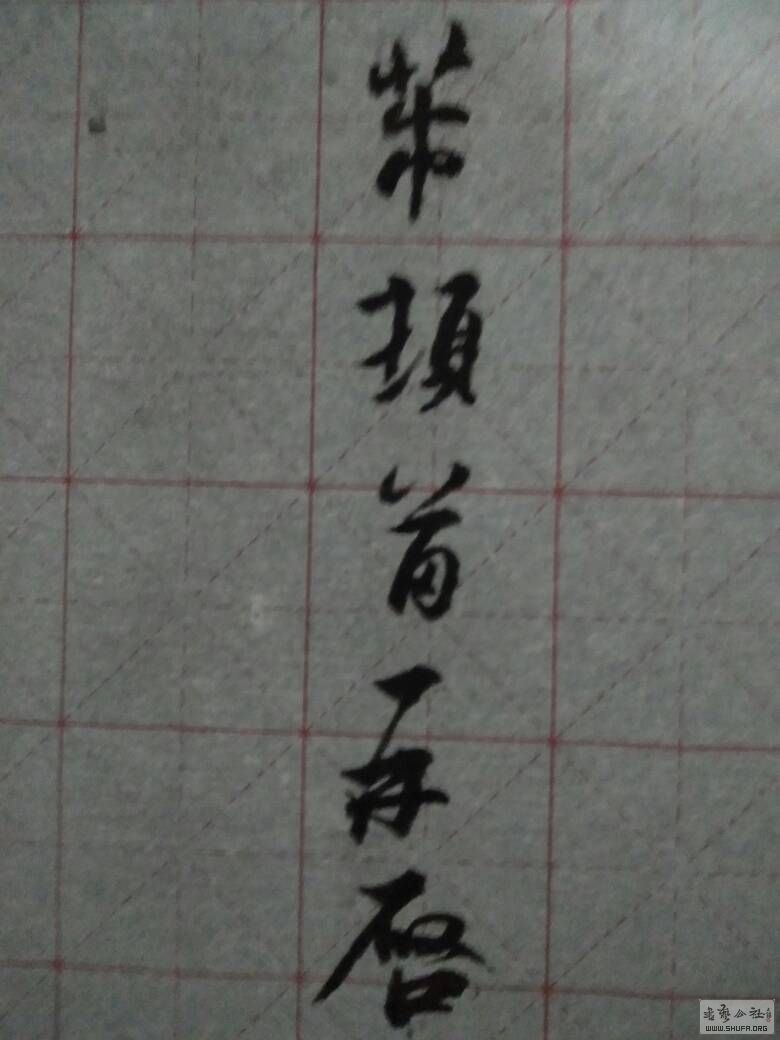 芾頓首再啓
書藝公社
WWW.SHUFA.ORG